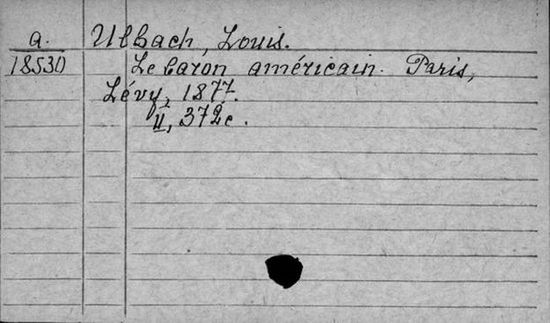 a.
18530
Ulbach, Louis.
Le baron américain. Paris,
Lévy, 1877.
II, 372 c.